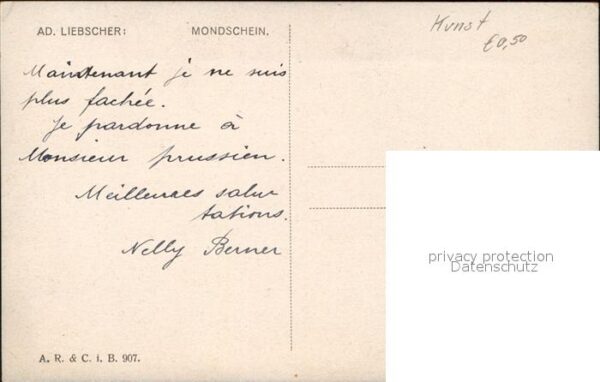 AD. LIEBSCHER: MONDSCHEIN.
Kunst
€0,50
Maintenant je ne suis
plus fachée.
Je pardonne à
Monsieur prussien.
Meilleures salu
tations.
Nelly Berner
privacy protection
Datenschutz
A. R. & C. i. B. 907.